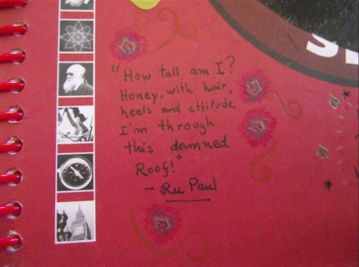 "How tall am I?
Honey. with hair,
heels and attitude
I'm through
this damned
Roof!"
- Ru Paul